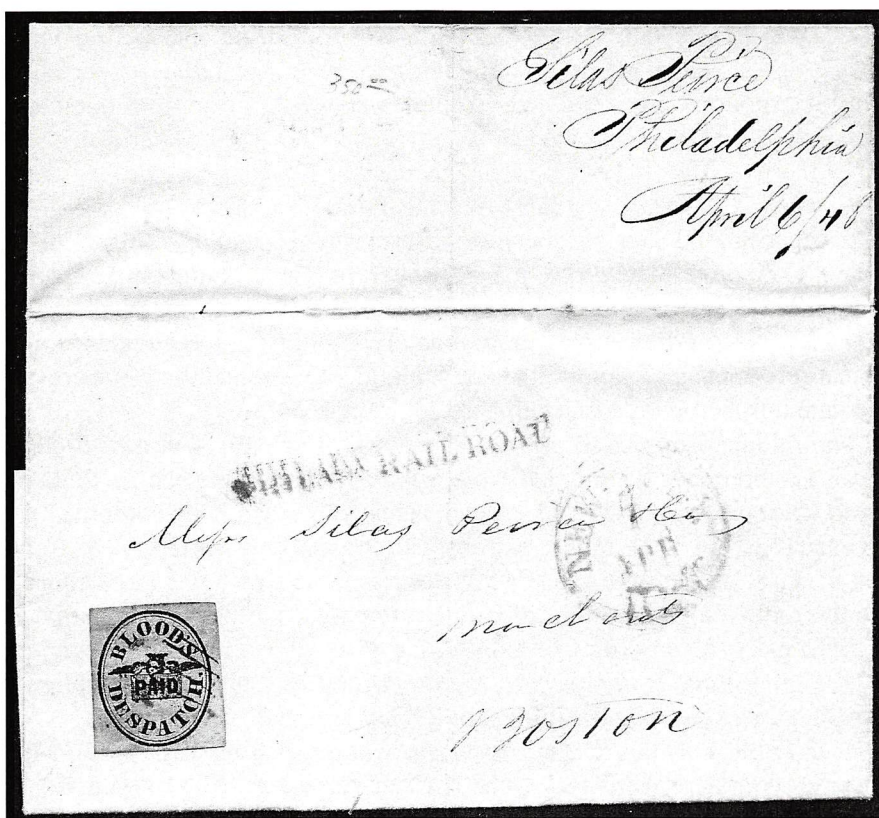 350 00
Silas Peirce
Philadelphia
April 6/48
PHILADA RAIL ROAD
Messrs Silas Peirce & Co
NEW
APR
Merchants
Boston
BLOOD'S
PAID
DESPATCH.